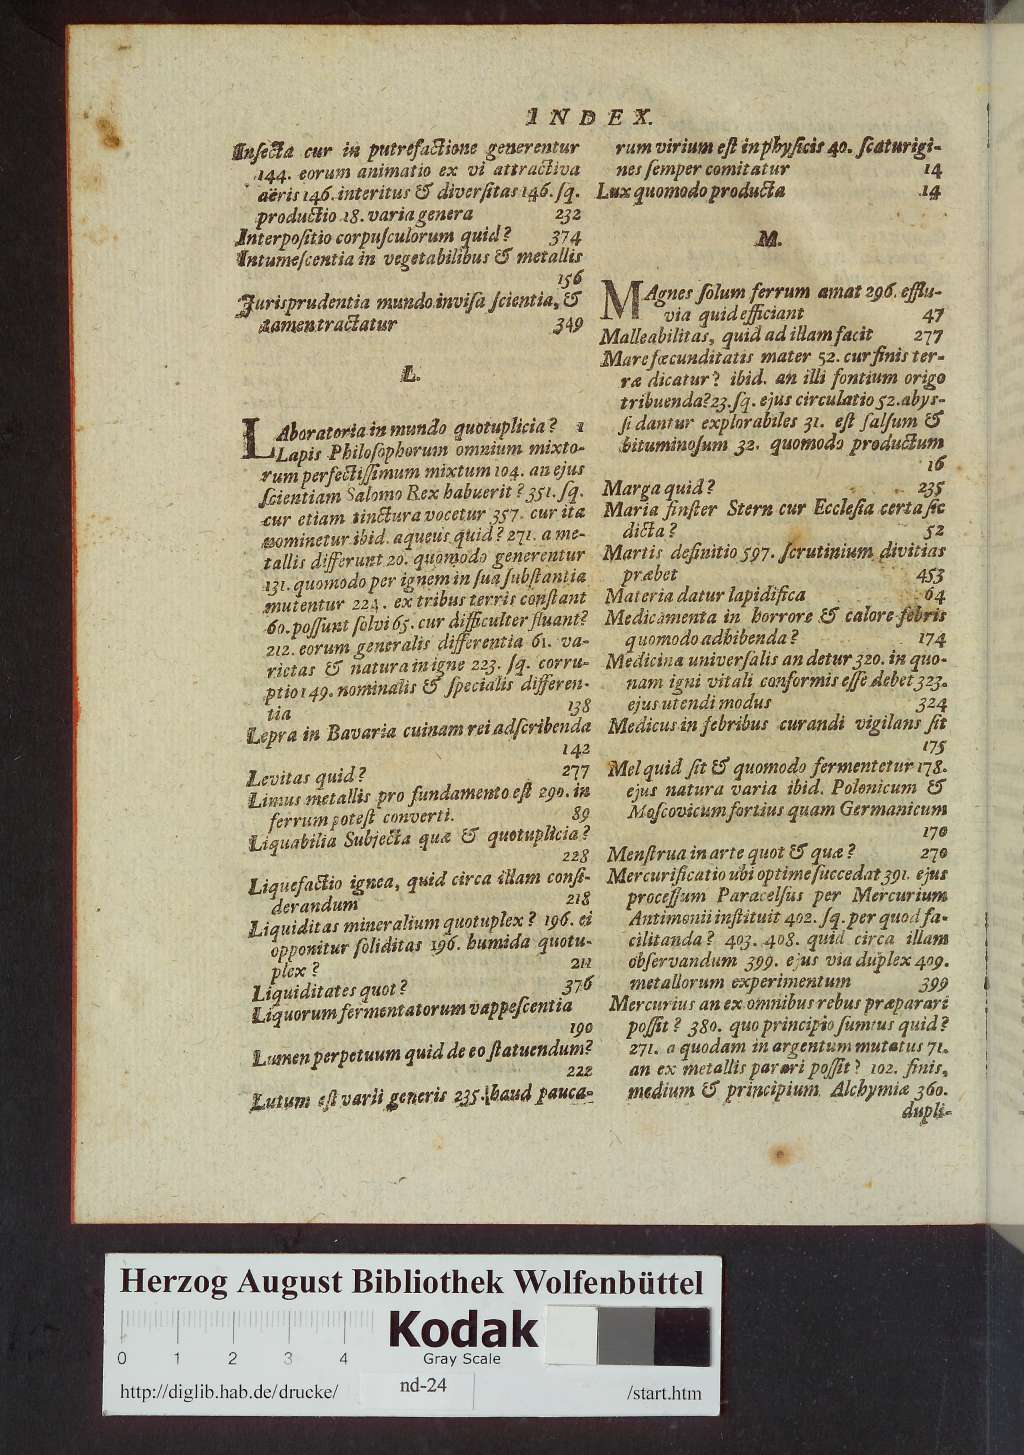 INDEX.
Inſecta cur in putrefactione generentur
144. eorum animatio ex vi attractiva
aëris 146. interitus & diverſitas 146. ſq.
productio 18. varia genera 232
Interpoſitio corpuſculorum quid? 374
Intumeſcentia in vegetabilibus & metallis
156
Jurisprudentia mundo inviſa ſcientia, &
tamen tractatur 349
L.
LAboratoria in mundo quotuplicia? 1
Lapis Philoſophorum omnium mixto-
rum perfectiſſimum mixtum 104. an ejus
ſcientiam Salomo Rex habuerit? 351. ſq.
cur etiam tinctura vocetur 357. cur ita
nominetur ibid. aqueus quid? 271. a me-
tallis differunt 20. quomodo generentur
131. quomodo per ignem in ſua ſubſtantia
mutentur 224. ex tribus terris conſtant
60. poſſunt ſolvi 65. cur difficulter fluant?
212. eorum generalis differentia 61. va-
rietas & natura in igne 223. ſq. corru-
ptio 149. nominalis & ſpecialis differen-
tia 138
Lepra in Bavaria cuinam rei adſcribenda
142
Levitas quid? 277
Limus metallis pro fundamento eſt 290. in
ferrum poteſt converti. 89
Liquabilia Subjecta quæ & quotuplicia?
228
Liquefactio ignea, quid circa illam conſi-
derandum 218
Liquiditas mineralium quotuplex? 196. ei
opponitur ſoliditas 196. humida quotu-
plex? 211
Liquiditates quot? 376
Liquorum fermentatorum vappeſcentia
190
Lumen perpetuum quid de eo ſtatuendum?
222
Lutum eſt varii generis 235. haud pauca-
rum virium eſt in phyſicis 40. ſcaturigi-
nes ſemper comitatur 14
Lux quomodo producta 14
M.
MAgnes ſolum ferrum amat 296. efflu-
via quid efficiant 47
Malleabilitas, quid ad illam facit 277
Mare fœcunditatis mater 52. cur finis ter-
ræ dicatur? ibid. an illi fontium origo
tribuenda? 23. ſq. ejus circulatio 52. abyſ-
ſi dantur explorabiles 31. eſt ſalſum &
bituminoſum 32. quomodo productum
16
Marga quid? 235
Maria finſter Stern cur Eccleſia certa ſic
dicta? 52
Martis definitio 597. ſcrutinium divitias
præbet 453
Materia datur lapidifica 64
Medicamenta in horrore & calore febris
quomodo adhibenda? 174
Medicina univerſalis an detur 320. in quo-
nam igni vitali conformis eſſe debet 323.
ejus utendi modus 324
Medicus in febribus curandi vigilans ſit
175
Mel quid ſit & quomodo fermentetur 178.
ejus natura varia ibid. Polonicum &
Moſcovicum fortius quam Germanicum
170
Menſtrua in arte quot & quæ? 270
Mercurificatio ubi optime ſuccedat 391. ejus
proceſſum Paracelſus per Mercurium
Antimonii inſtituit 402. ſq. per quod fa-
cilitanda? 403. 408. quid circa illam
obſervandum 399. ejus via duplex 409.
metallorum experimentum 399
Mercurius an ex omnibus rebus præparari
poſſit? 380. quo principio ſumtus quid?
271. a quodam in argentum mutatus 71.
an ex metallis parari poſſit? 102. finis,
medium & principium Alchymiæ 360.
dupli-
Herzog August Bibliothek Wolfenbüttel
Kodak
Gray Scale
0 1 2 3 4
http://diglib.hab.de/drucke/ nd-24 /start.htm